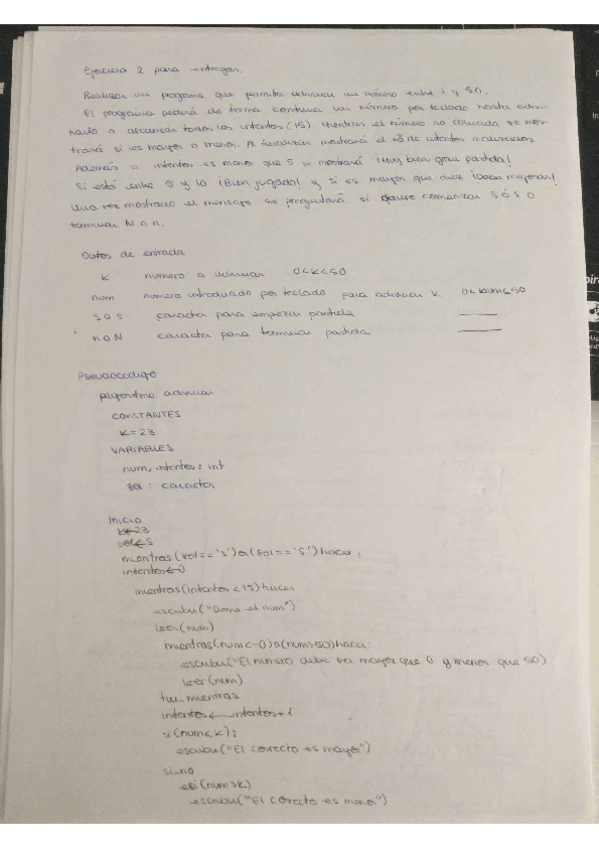 Ejercicio 2 para entregar.
Realizar un programa que permita adivinar un número entre 1 y 50.
El programa pedirá de forma continua un número por teclado hasta adivi-
narlo o alcanzar todos los intentos (15). Mientras el número no coincida se mos-
trará si es mayor o menor. Al finalizar mostrará el nº de intentos realizados
Además si intentos es menor que 5 se mostrará ¡Muy bien, gran partida!
Si está entre 5 y 10 ¡Bien jugado! y si es mayor que diez ¡Debes mejorar!
Una vez mostrado el mensaje se preguntará si desee comenzar S ó s o
terminar N o n.
Datos de entrada
K numero a adivinar 0<K<50
num numero introducido por teclado para adivinar K. 0<num<50
s o S caracter para empezar partida
n o N caracter para terminar partida
Pseudocodigo
Algoritmo adivinar
CONSTANTES
K = 23
VARIABLES
num, intentos : int
sol : caracter
Inicio
K←23
sol←S
mientras (sol == 's') o (sol == 'S') hacer :
intentos←0
mientras (intentos < 15) hacer
escribir ("Dame el num")
leer (num)
mientras (num<=0) o (num>50) hacer:
escribir ("El numero debe ser mayor que 0 y menor que 50)
leer (num)
fin mientras
intentos ← intentos+1
si (num<K) :
escribir ("El correcto es mayor")
si no
si (num>K)
escribir ("El correcto es menor")